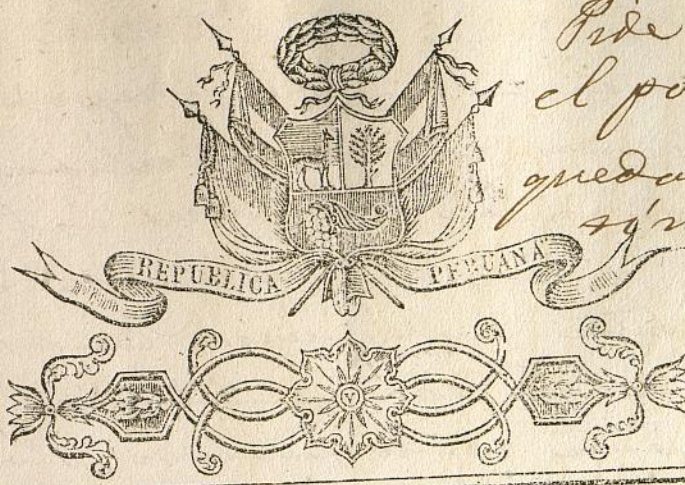 Pide
el po
queda
REPUBLICA PERUANA